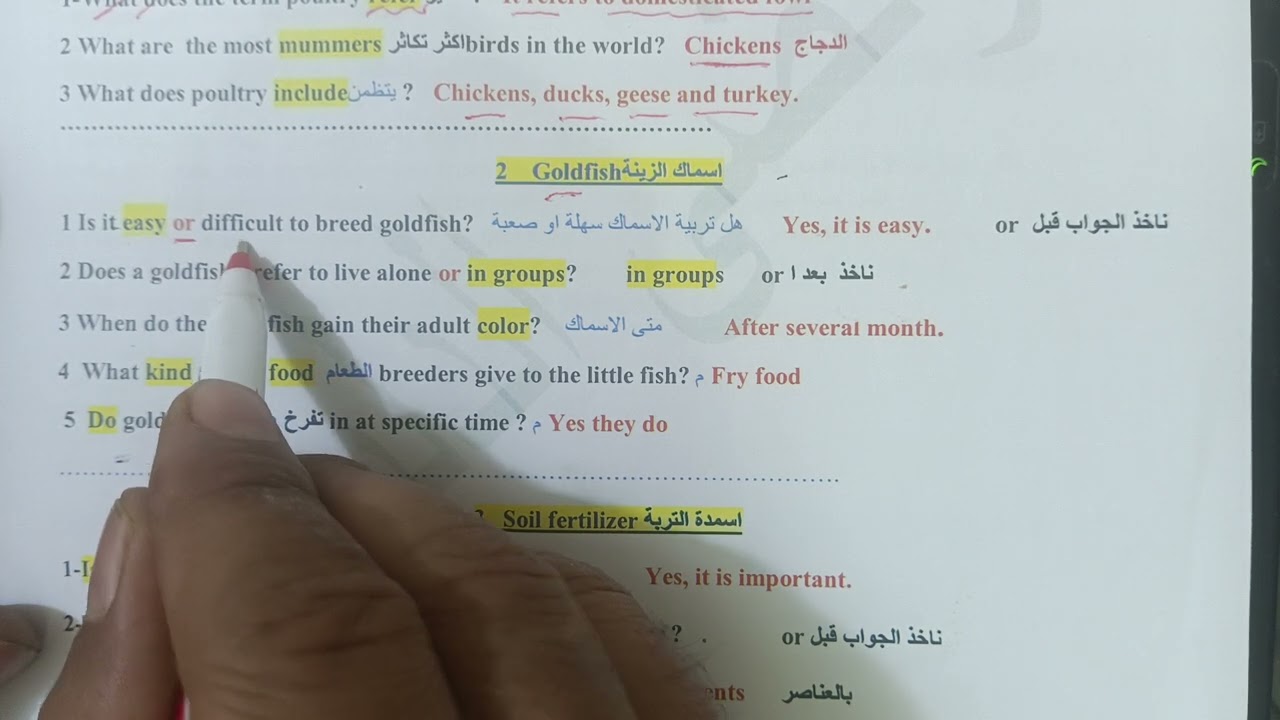 What does the term poultry refer ? It refers to domesticated fowl.
2 What are the most mummers اكثر تكاثر birds in the world? Chickens الدجاج
3 What does poultry include يتظمن ? Chickens, ducks, geese and turkey.
2 Goldfish اسماك الزينة
1 Is it easy or difficult to breed goldfish? هل تربية الاسماك سهلة او صعبة Yes, it is easy. or ناخذ الجواب قبل
2 Does a goldfish refer to live alone or in groups? in groups or ناخذ بعد ا
3 When do the fish gain their adult color? متى الاسماك After several month.
4 What kind food الطعام breeders give to the little fish? م Fry food
5 Do gold تفرخ in at specific time ? م Yes they do
Soil fertilizer اسمدة التربة
1- Yes, it is important.
2- ? . or ناخذ الجواب قبل
بالعناصر